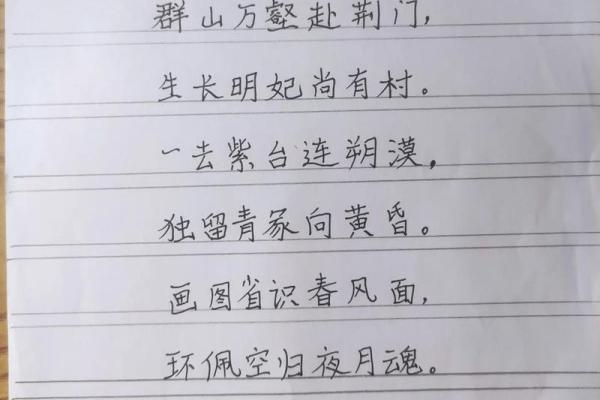 群山万壑赴荆门，
生长明妃尚有村。
一去紫台连朔漠，
独留青冢向黄昏。
画图省识春风面，
环佩空归夜月魂。